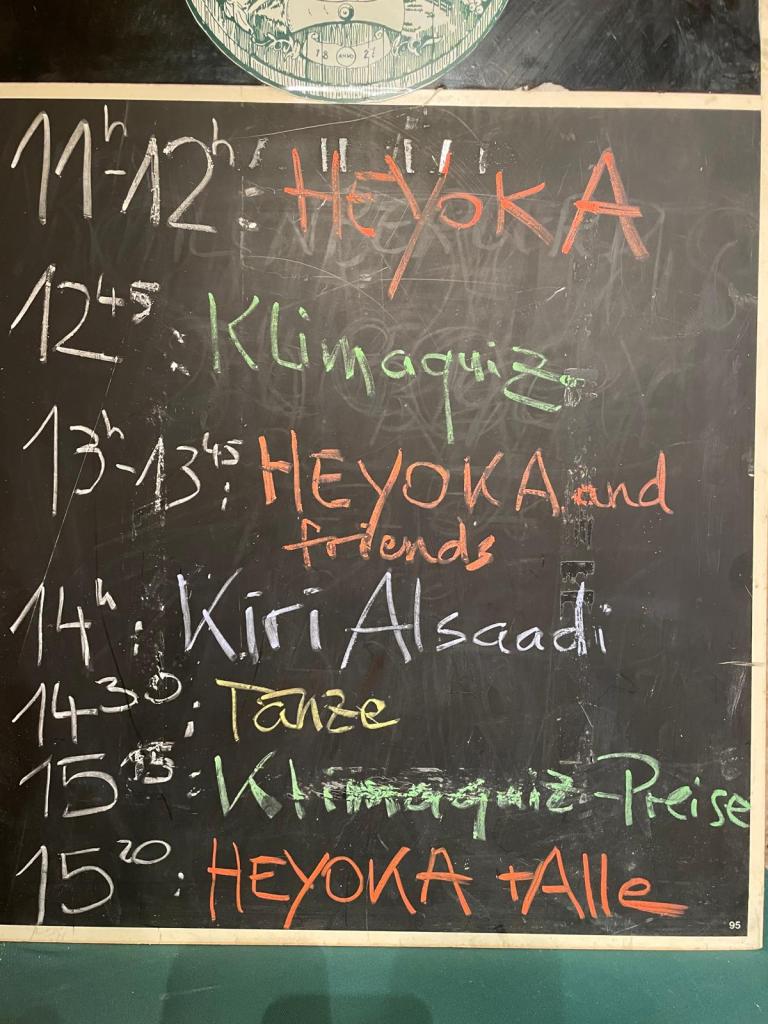 18 ANNO 27
11h-12h: HEYOKA
12 45: Klimaquiz
13h-13 45: HEYOKA and
friends
14h: Kiri Alsaadi
14 30: Tänze
15 15: Klimaquiz-Preise
15 20: HEYOKA +Alle
95